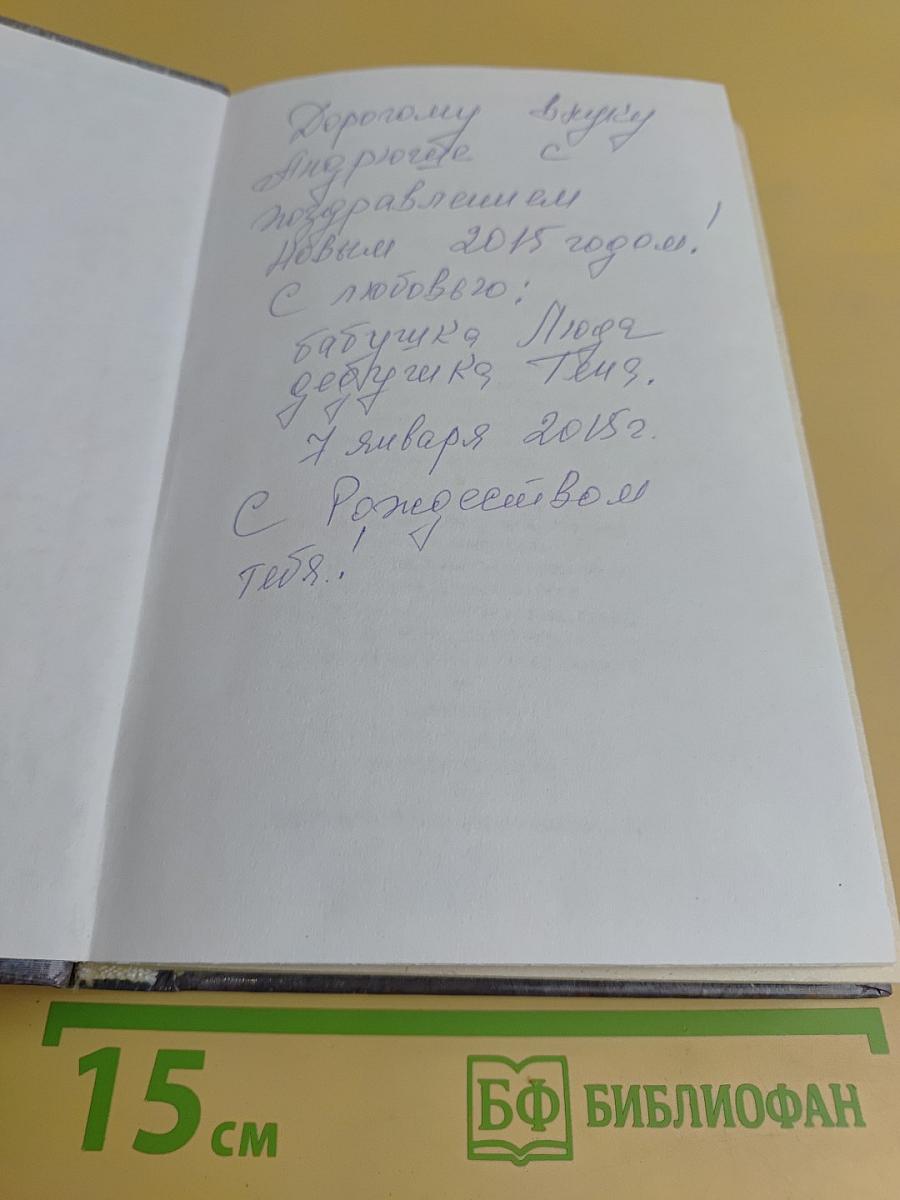 Дорогому внуку
Андрюше с
поздравлением
Новым 2015 годом!
С любовью:
бабушка Люда
дедушка Гена.
7 января 2015г.
С Рождеством
тебя!
15 см
БФ БИБЛИОФАН